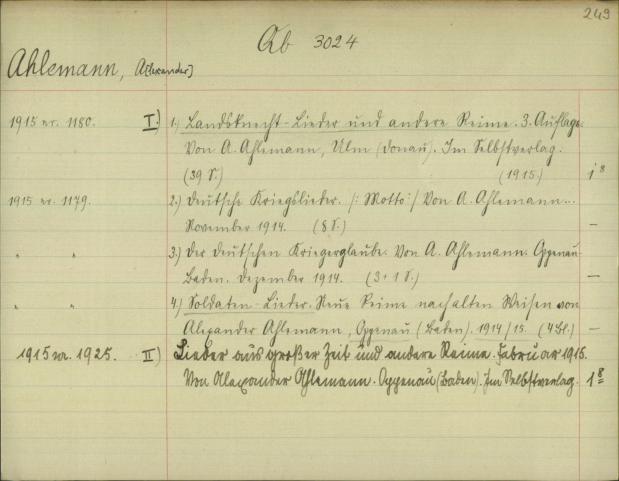 249
Ab 3024
Ahlemann, A[lexander]
1915 nr. 1180. I.) 1.) Landsknecht-Lieder und andere Reime. 3. Auflage.
Von A. Ahlemann, Ulm (Donau). Im Selbstverlag.
(39 S.) (1915) 1 8
1915 nr. 1179. 2.) Deutsche Kriegslieder. /: Motto :/ Von A. Ahlemann...
November 1914. (8 S.) —
" " 3.) Der deutschen Kriegerglaube. Von A. Ahlemann. Oppenau-
Baden. Dezember 1914. (3+1 S.) —
" " 4.) Soldaten-Lieder. Neue Reime nach alten Weisen von
Alexander Ahlemann, Oppenau (Baden). 1914/15. (4 Bl.) —
1915 nr. 1925. II.) Lieder aus großer Zeit und andere Reime. Februar 1915.
Von Alexander Ahlemann. Oppenau (Baden). Im Selbstverlag. 1 8